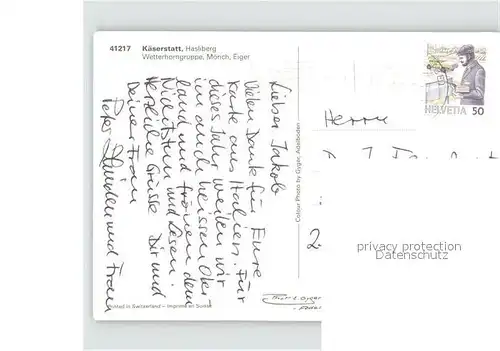 41217 Käserstatt, Hasliberg
Wetterhorngruppe, Mönch, Eiger
Lieber Jakob
Vielen Dank für Eure
Karte aus Italien. Für
dieses Jahr weilen wir
im auch heissen Ober-
land und frönen dem
Nichtstun und Lesen.
Herzliche Grüsse Dir und
Deiner Frau
Peter und Frau
Colour Photo by Gyger, Adelboden
HELVETIA 50
Herrn
privacy protection
Datenschutz
Printed in Switzerland – Imprimé en Suisse